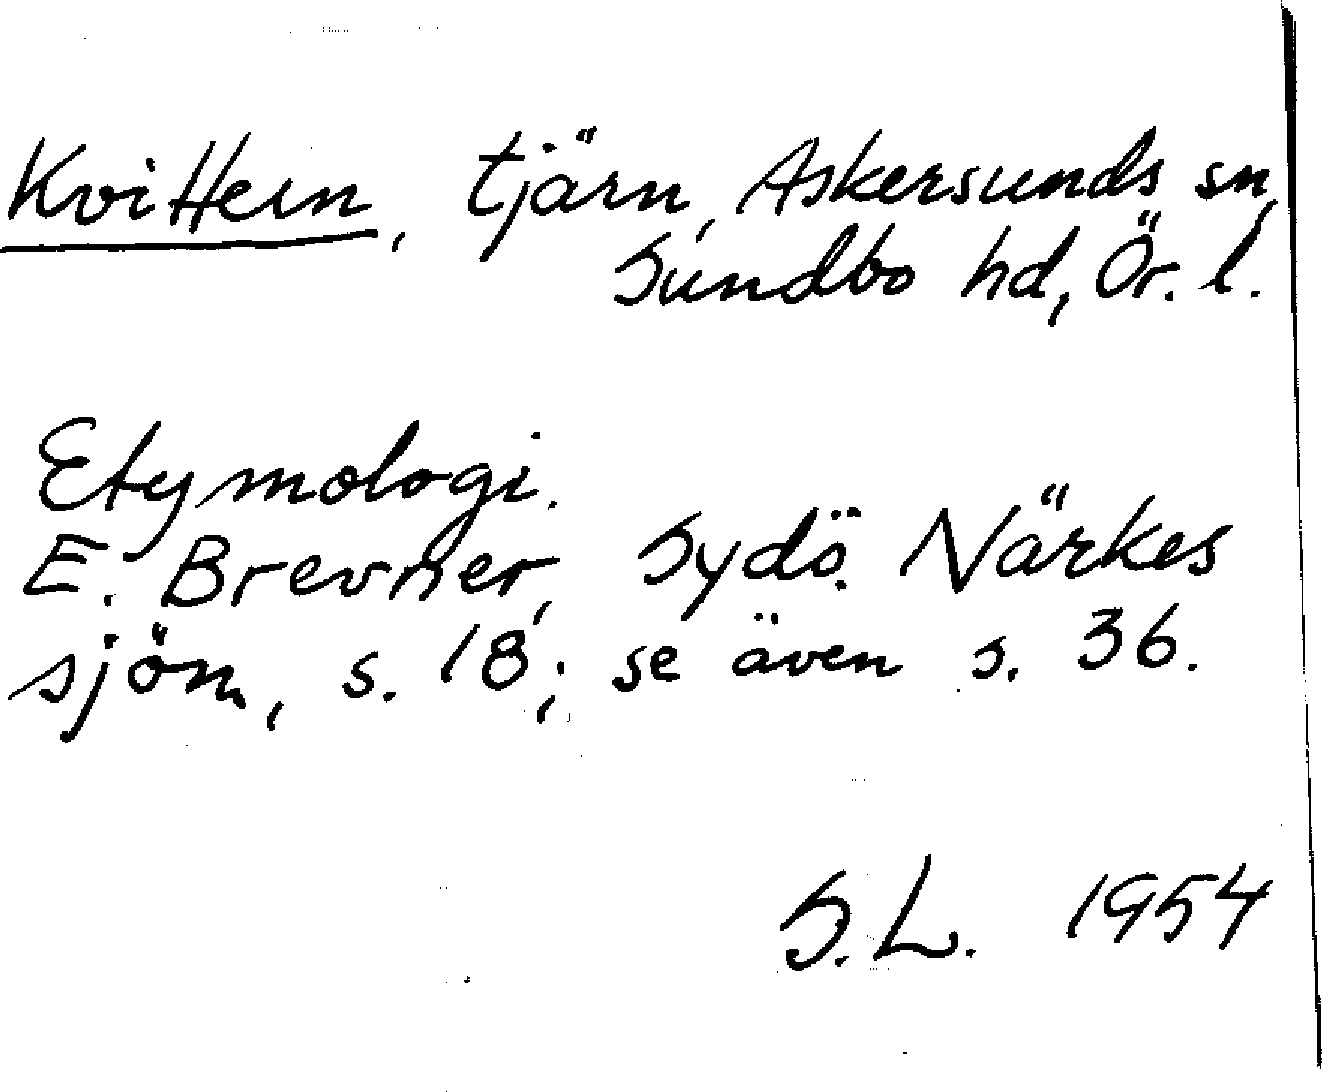 Kvittern, tjärn, Askersunds sn,
Sundbo hd, Ör. l.
Etymologi.
E. Brevner, Sydö. Närkes
sjön., s. 18; se även s. 36.
S.L. 1954